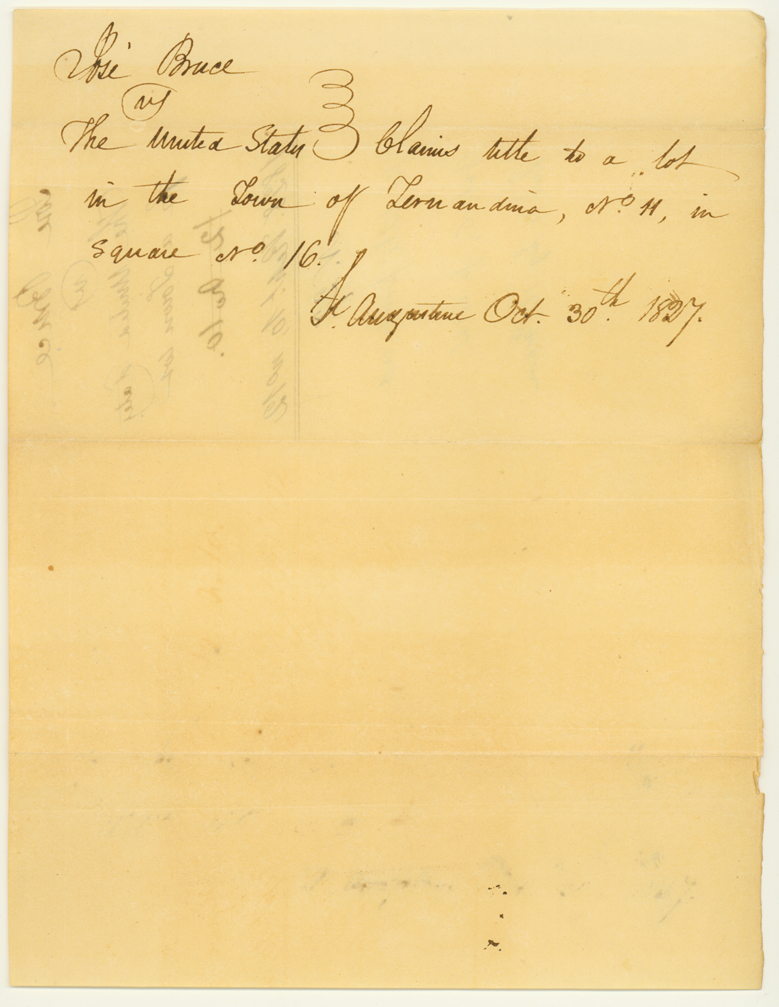 José Bruce
vs
The United States } Claims title to a lot
in the Town of Fernandina, No. 11, in
Square No. 16.
St. Augustine Oct. 30th. 1827.